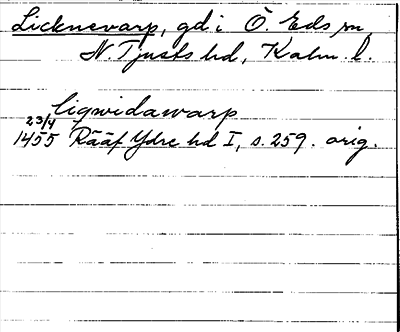 Licknevarp, gd i Ö. Eds sn,
N. Tjusts hd, Kalm. l.
liqwidawarp
23/4
1455 Rääf Ydre hd I, s. 259. orig.